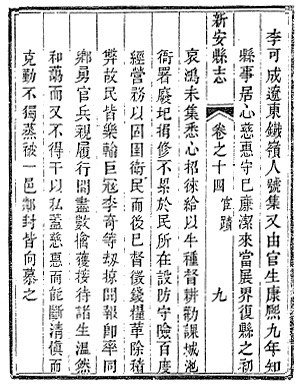 李可成遼東鐵嶺人號集又由官生康熙九年知
縣事居心慈惠守巳廉潔來當展界復縣之初
新安縣志
卷之十四
宦蹟
九
哀鴻未集悉心招徠給以牛種督耕勸課城池
衙署廢圯捐修不累於民所在設防守險百度
經營務以固圉衛民而後巳督徵錢糧革除積
弊故民皆樂輸巨冦李奇等刼掠聞報卽率同
鄉勇官兵親履行間盡數擒獲接待諸生溫然
和藹而又不得干以私蓋慈惠而能斷清慎而
克勤不獨蒸被一邑鄰封皆向慕之